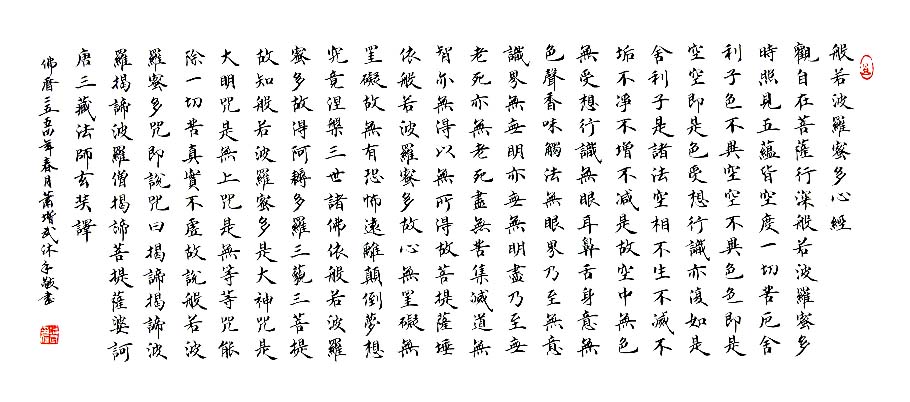 般若波羅蜜多心經
觀自在菩薩行深般若波羅蜜多
時照見五蘊皆空度一切苦厄舍
利子色不異空空不異色色即是
空空即是色受想行識亦復如是
舍利子是諸法空相不生不滅不
垢不淨不增不減是故空中無色
無受想行識無眼耳鼻舌身意無
色聲香味觸法無眼界乃至無意
識界無無明亦無無明盡乃至無
老死亦無老死盡無苦集滅道無
智亦無得以無所得故菩提薩埵
依般若波羅蜜多故心無罣礙無
罣礙故無有恐怖遠離顛倒夢想
究竟涅槃三世諸佛依般若波羅
蜜多故得阿耨多羅三藐三菩提
故知般若波羅蜜多是大神咒是
大明咒是無上咒是無等等咒能
除一切苦真實不虛故說般若波
羅蜜多咒即說咒曰揭諦揭諦波
羅揭諦波羅僧揭諦菩提薩婆訶
唐三藏法師玄奘譯
佛曆二五五四年春月蕭沐手敬書